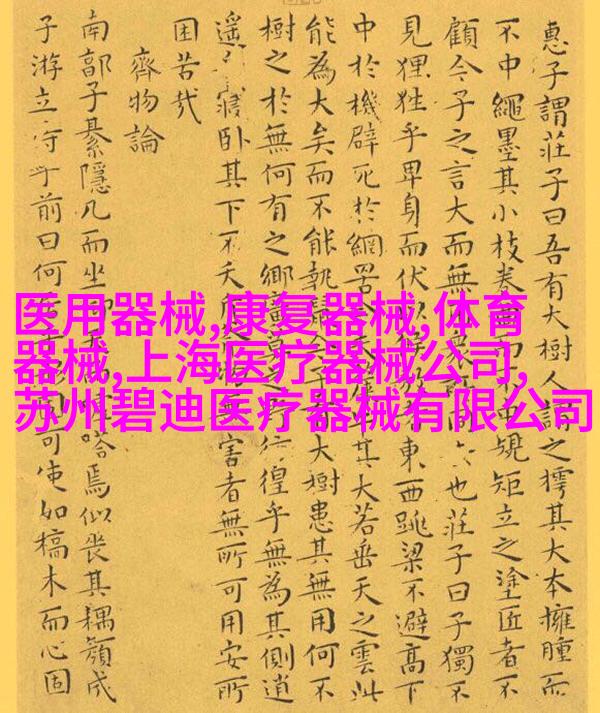 医用器械,康复器械,体育
器械,上海医疗器械公司,
苏州碧迪医疗器械有限公司
惠子謂莊子曰吾有大樹人謂之樗其大本擁腫而
不中繩墨其小枝卷不中規矩立之塗匠者不
顧今子之言大而無也莊子曰子獨不
見狸狌乎卑身而伏東西跳梁不避高下
中於機辟死於網罟其大若垂天之雲此
能為大矣而不能執大樹患其無用何不
樹之於無何有之鄉徨乎無為其側逍
遙寢臥其下不夭害者無所可用安所
困苦哉
齊物論
南郭子綦隱几而坐嗒焉似喪其耦顏成
子游立侍乎前曰何可使如槁木而心固